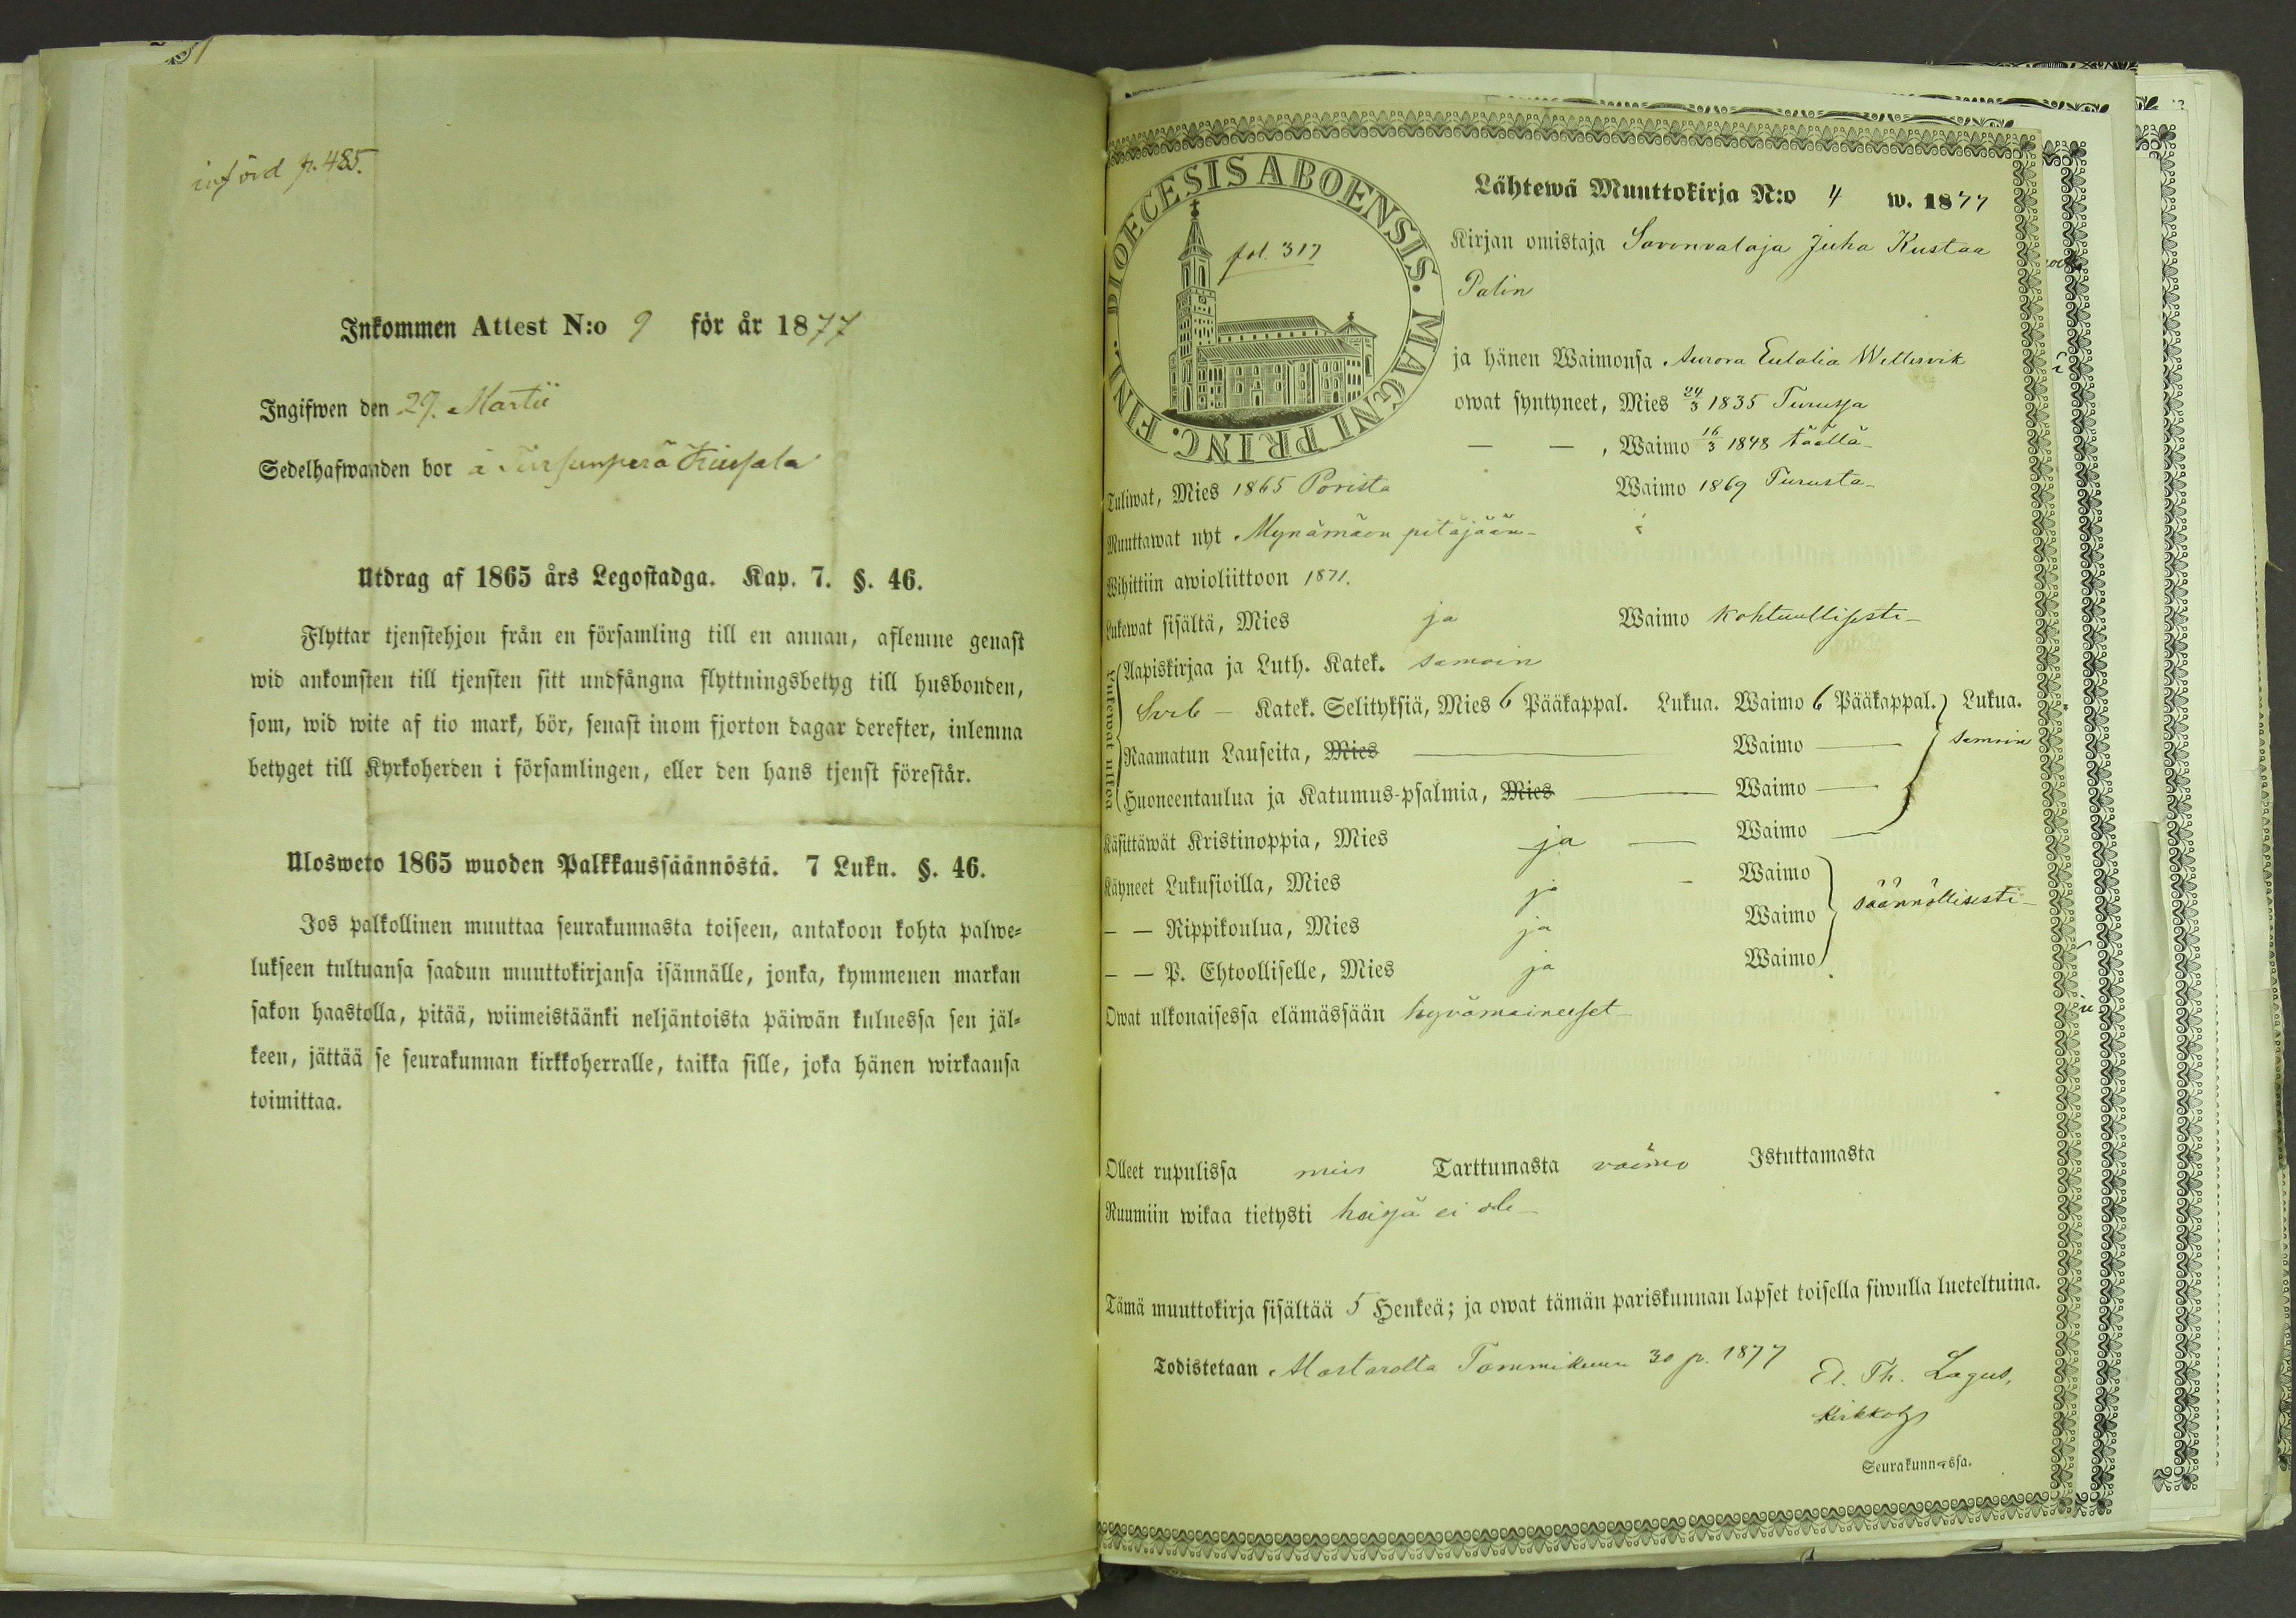 införd p. 485.
Inkommen Attest N:o 9 för år 1877
Ingifwen den 29. Martii
Sedelhafwanden bor å
Utdrag af 1865 års Legostadga. Kap. 7. §. 46.
Flyttar tjenstehjon från en församling till en annan, aflemne genast
wid ankomsten till tjensten sitt undfångna flyttningsbetyg till husbonden,
som, wid wite af tio mark, bör, senast inom fjorton dagar derefter, inlemna
betyget till Kyrkoherden i församlingen, eller den hans tjenst förestår.
Ulosweto 1865 wuoden Palkkaussäännöstä. 7 Lukn. §. 46.
Jos palkollinen muuttaa seurakunnasta toiseen, antakoon kohta palwe-
lukseen tultuansa saadun muuttokirjansa isännälle, jonka, kymmenen markan
sakon haastolla, pitää, wiimeistäänki neljäntoista päiwän kuluessa sen jäl-
keen, jättää se seurakunnan kirkkoherralle, taikka sille, joka hänen wirkaansa
toimittaa.
DIOECESIS ABOENSIS. MAGNI PRINC. FINL.
fol. 317
Lähtewä Muuttokirja N:o 4 w. 1877
Kirjan omistaja Savenvalaja Juha Kustaa
Palin
ja hänen Waimonsa Aurora Eulalia Wellervik
owat syntyneet, Mies 24/3 1835 Turussa
— — , Waimo 16/3 1848 täällä-
Tuliwat, Mies 1865 Porista Waimo 1869 Turusta-
Muuttawat nyt Mynämäen pitäjään-
Wihittiin awioliittoon 1871.
Lukewat sisältä, Mies ja Waimo kohtuullisesti-
Lukewat ulkoa
Aapiskirjaa ja Luth. Katek. samoin
Sveb — Katek. Selityksiä, Mies 6 Pääkappal. Lukua. Waimo 6 Pääkappal. Lukua.
Raamatun Lauseita, Mies — Waimo — samoin
Huoneentaulua ja Katumus-psalmia, Mies — Waimo —
Käsittäwät Kristinoppia, Mies ja — Waimo —
Käyneet Lukusioilla, Mies ja - Waimo
— — Rippikoulua, Mies ja Waimo säännöllisesti-
— — P. Ehtoolliselle, Mies ja Waimo
Owat ulkonaisessa elämässään hyvämaineeset-
Olleet rupulissa mies Tarttumasta vaimo Istuttamasta
Ruumiin wikaa tietysti heissä ei ole-
Tämä muuttokirja sisältää 5 Henkeä; ja owat tämän pariskunnan lapset toisella siwulla lueteltuina.
Todistetaan Maskussa Tammikuun 30 p. 1877
Lagus,
Kirkkoh
Seurakunnassa.